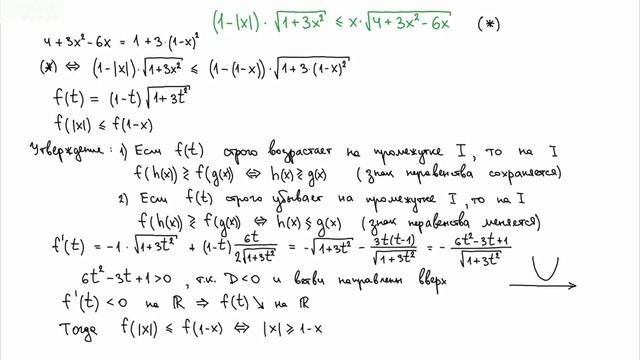 (1-|x|)·√(1+3x²) ≤ x·√(4+3x²-6x) (*)
4+3x²-6x = 1+3·(1-x)²
(*) ⇔ (1-|x|)·√(1+3x²) ≤ (1-(1-x))·√(1+3·(1-x)²)
f(t) = (1-t)√(1+3t²)
f(|x|) ≤ f(1-x)
Утверждение: 1) Если f(t) строго возрастает на промежутке I, то на I
f(h(x)) ≥ f(g(x)) ⇔ h(x) ≥ g(x) (знак неравенства сохраняется)
2) Если f(t) строго убывает на промежутке I, то на I
f(h(x)) ≥ f(g(x)) ⇔ h(x) ≤ g(x) (знак неравенства меняется)
f'(t) = -1·√(1+3t²) + (1-t) 6t/(2√(1+3t²)) = -√(1+3t²) - 3t(t-1)/√(1+3t²) = - (6t²-3t+1)/√(1+3t²)
6t²-3t+1>0, т.к. D<0 и ветви направлены вверх
f'(t)<0 на ℝ ⇒ f(t)↘ на ℝ
Тогда f(|x|) ≤ f(1-x) ⇔ |x| ≥ 1-x